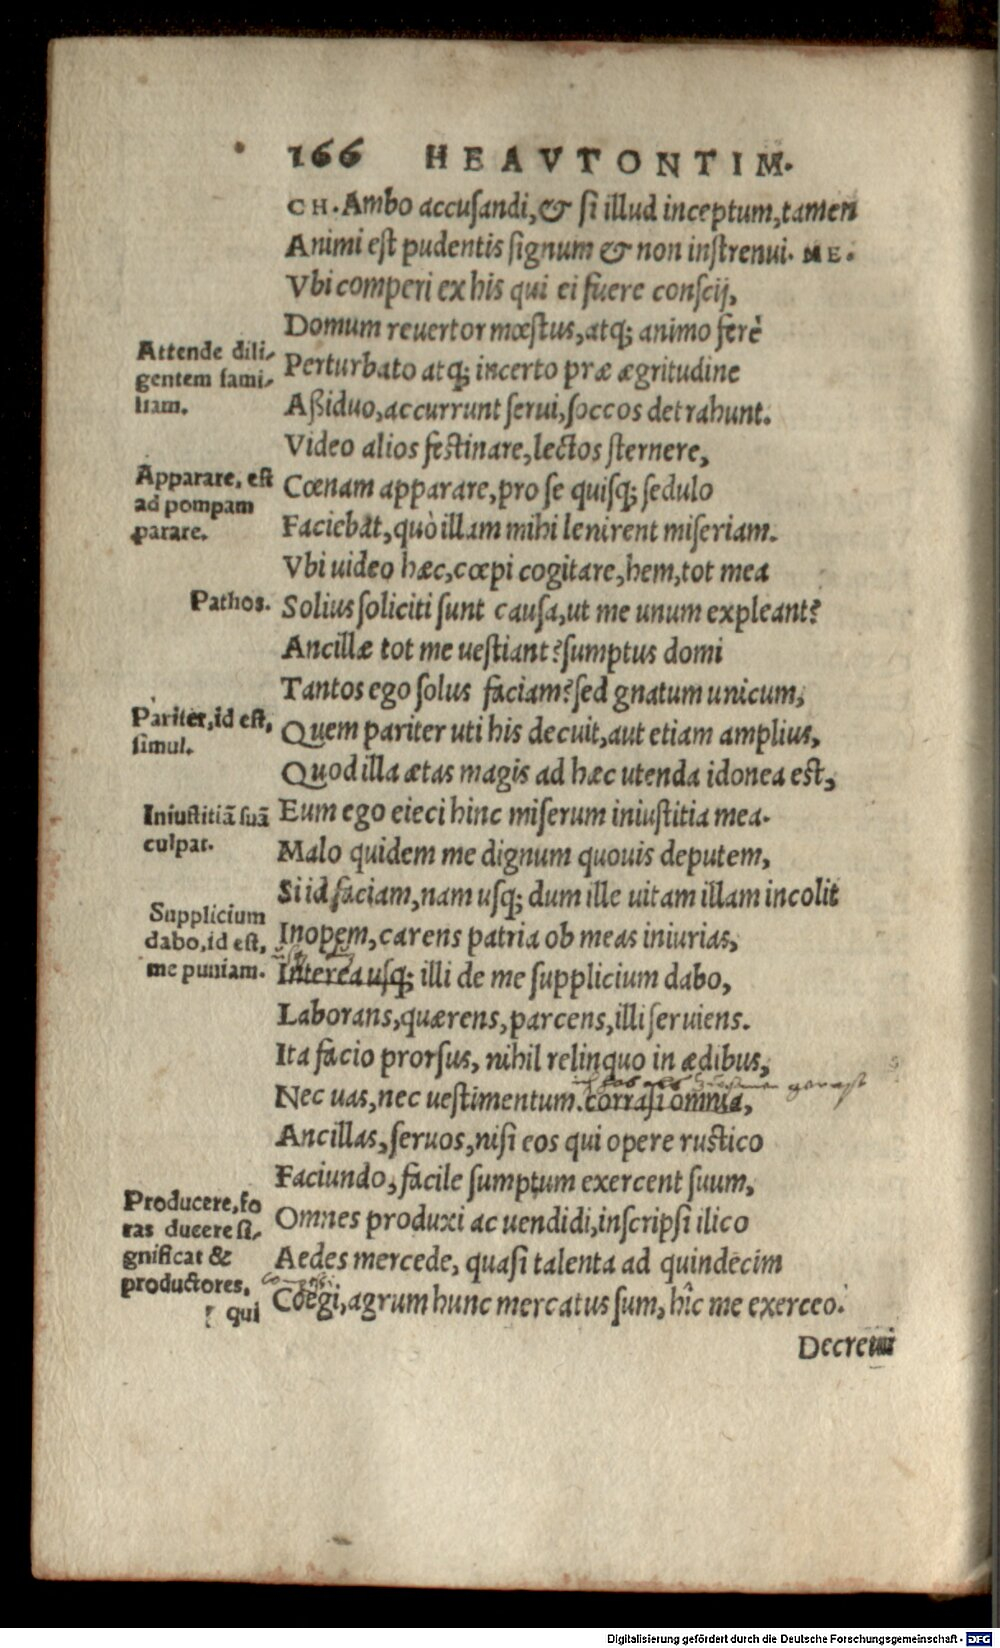 166 HEAVTONTIM.
CH. Ambo accuſandi, & ſi illud inceptum, tamen
Animi eſt pudentis ſignum & non inſtrenui. ME.
Vbi comperi ex his qui ei fuere conſcij,
Domum reuertor mœſtus, atq; animo ferè
Attende dili-
gentem fami-
liam.
Perturbato atq; incerto præ ægritudine
Aßiduo, accurrunt ſerui, ſoccos detrahunt.
Video alios feſtinare, lectos ſternere,
Apparare, eſt
ad pompam
parare.
Cœnam apparare, pro ſe quiſq; ſedulo
Faciebat, quò illam mihi lenirent miſeriam.
Vbi uideo hæc, cœpi cogitare, hem, tot mea
Pathos.
Solius ſoliciti ſunt cauſa, ut me unum expleant?
Ancillæ tot me ueſtiant? ſumptus domi
Tantos ego ſolus faciam? ſed gnatum unicum,
Pariter, id eſt,
ſimul.
Quem pariter uti his decuit, aut etiam amplius,
Quod illa ætas magis ad hæc utenda idonea est,
Iniuſtitiã ſuã
culpat.
Eum ego eieci hinc miſerum iniuſtitia mea.
Malo quidem me dignum quouis deputem,
Si id faciam, nam uſq; dum ille uitam illam incolit
Supplicium
dabo, id eſt,
me puniam.
Inopem, carens patria ob meas iniurias,
Interea uſq; illi de me ſupplicium dabo,
Laborans, quærens, parcens, illi ſeruiens.
Ita facio prorſus, nihil relinquo in ædibus,
Nec uas, nec ueſtimentum. corraſi omnia,
Ancillas, ſeruos, niſi eos qui opere ruſtico
Faciundo, facile ſumptum exercent ſuum,
Producere, fo
ras ducere ſi-
gnificat &
productores,
qui
Omnes produxi ac uendidi, inſcripſi ilico
Aedes mercede, quaſi talenta ad quindecim
Coëgi, agrum hunc mercatus ſum, hîc me exerceo.
Decreui
Digitalisierung gefördert durch die Deutsche Forschungsgemeinschaft - DFG